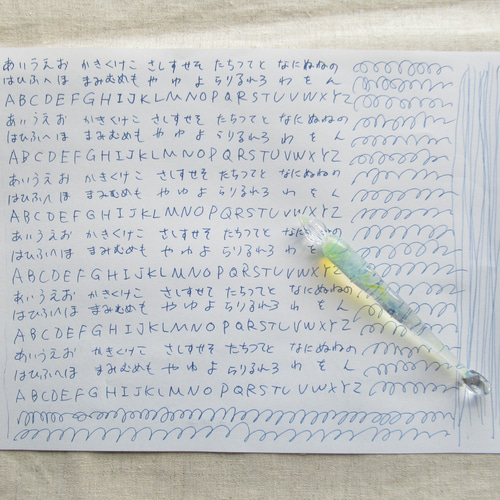 あいうえお かきくけこ さしすせそ たちつてと なにぬねの
はひふへほ まみむめも や ゆ よ らりるれろ わ を ん
ABCDEFGHIJKLMNOPQRSTUVWXYZ
あいうえお かきくけこ さしすせそ たちつてと なにぬねの
はひふへほ まみむめも や ゆ よ らりるれろ わ を ん
ABCDEFGHIJKLMNOPQRSTUVWXYZ
あいうえお かきくけこ さしすせそ たちつてと なにぬねの
はひふへほ まみむめも や ゆ よ らりるれろ わ を ん
ABCDEFGHIJKLMNOPQRSTUVWXYZ
あいうえお かきくけこ さしすせそ たちつてと
はひふへほ まみむめも や ゆ よ らりるれろ わ
ABCDEFGHIJKLMNOPQRSTUVWXYZ
あいうえお かきくけこ さしすせそ たちつてと なにぬねの
はひふへほ まみむめも や ゆ よ らりるれろ わ を ん
ABCDEFGHIJKLMNOPQRSTUVWXYZ
あいうえお かきくけこ さしすせそ たちつてと なにぬねの
はひふへほ まみむめも や ゆ よ らりるれろ わ を ん
ABCDEFGHIJKLMNOPQRSTUVWXYZ